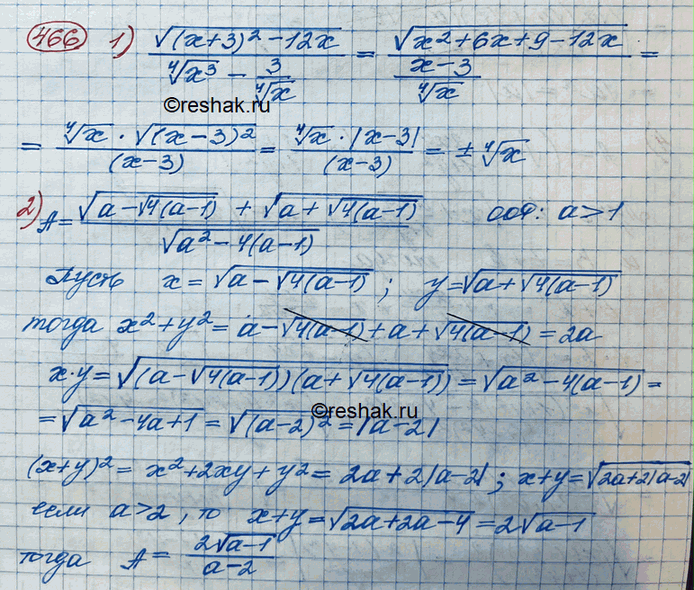 466 1) √((x+3)² − 12x) / (⁴√x³ − 3/⁴√x) = √(x²+6x+9−12x) / ((x−3)/⁴√x) =
©reshak.ru
= ⁴√x · √((x−3)²) / (x−3) = ⁴√x · |x−3| / (x−3) = ± ⁴√x
2) A = (√(a−√4(a−1)) + √(a+√4(a−1))) / √(a²−4(a−1)) ООФ: a>1
Пусть x = √(a−√4(a−1)) ; y = √(a+√4(a−1))
тогда x²+y² = a−√4(a−1) + a+√4(a−1) = 2a
x·y = √((a−√4(a−1))(a+√4(a−1))) = √(a²−4(a−1)) =
©reshak.ru
= √(a²−4a+1) = √((a−2)²) = |a−2|
(x+y)² = x²+2xy+y² = 2a+2|a−2| ; x+y = √(2a+2|a−2|)
если a>2, то x+y = √(2a+2a−4) = 2√(a−1)
тогда A = 2√(a−1) / (a−2)